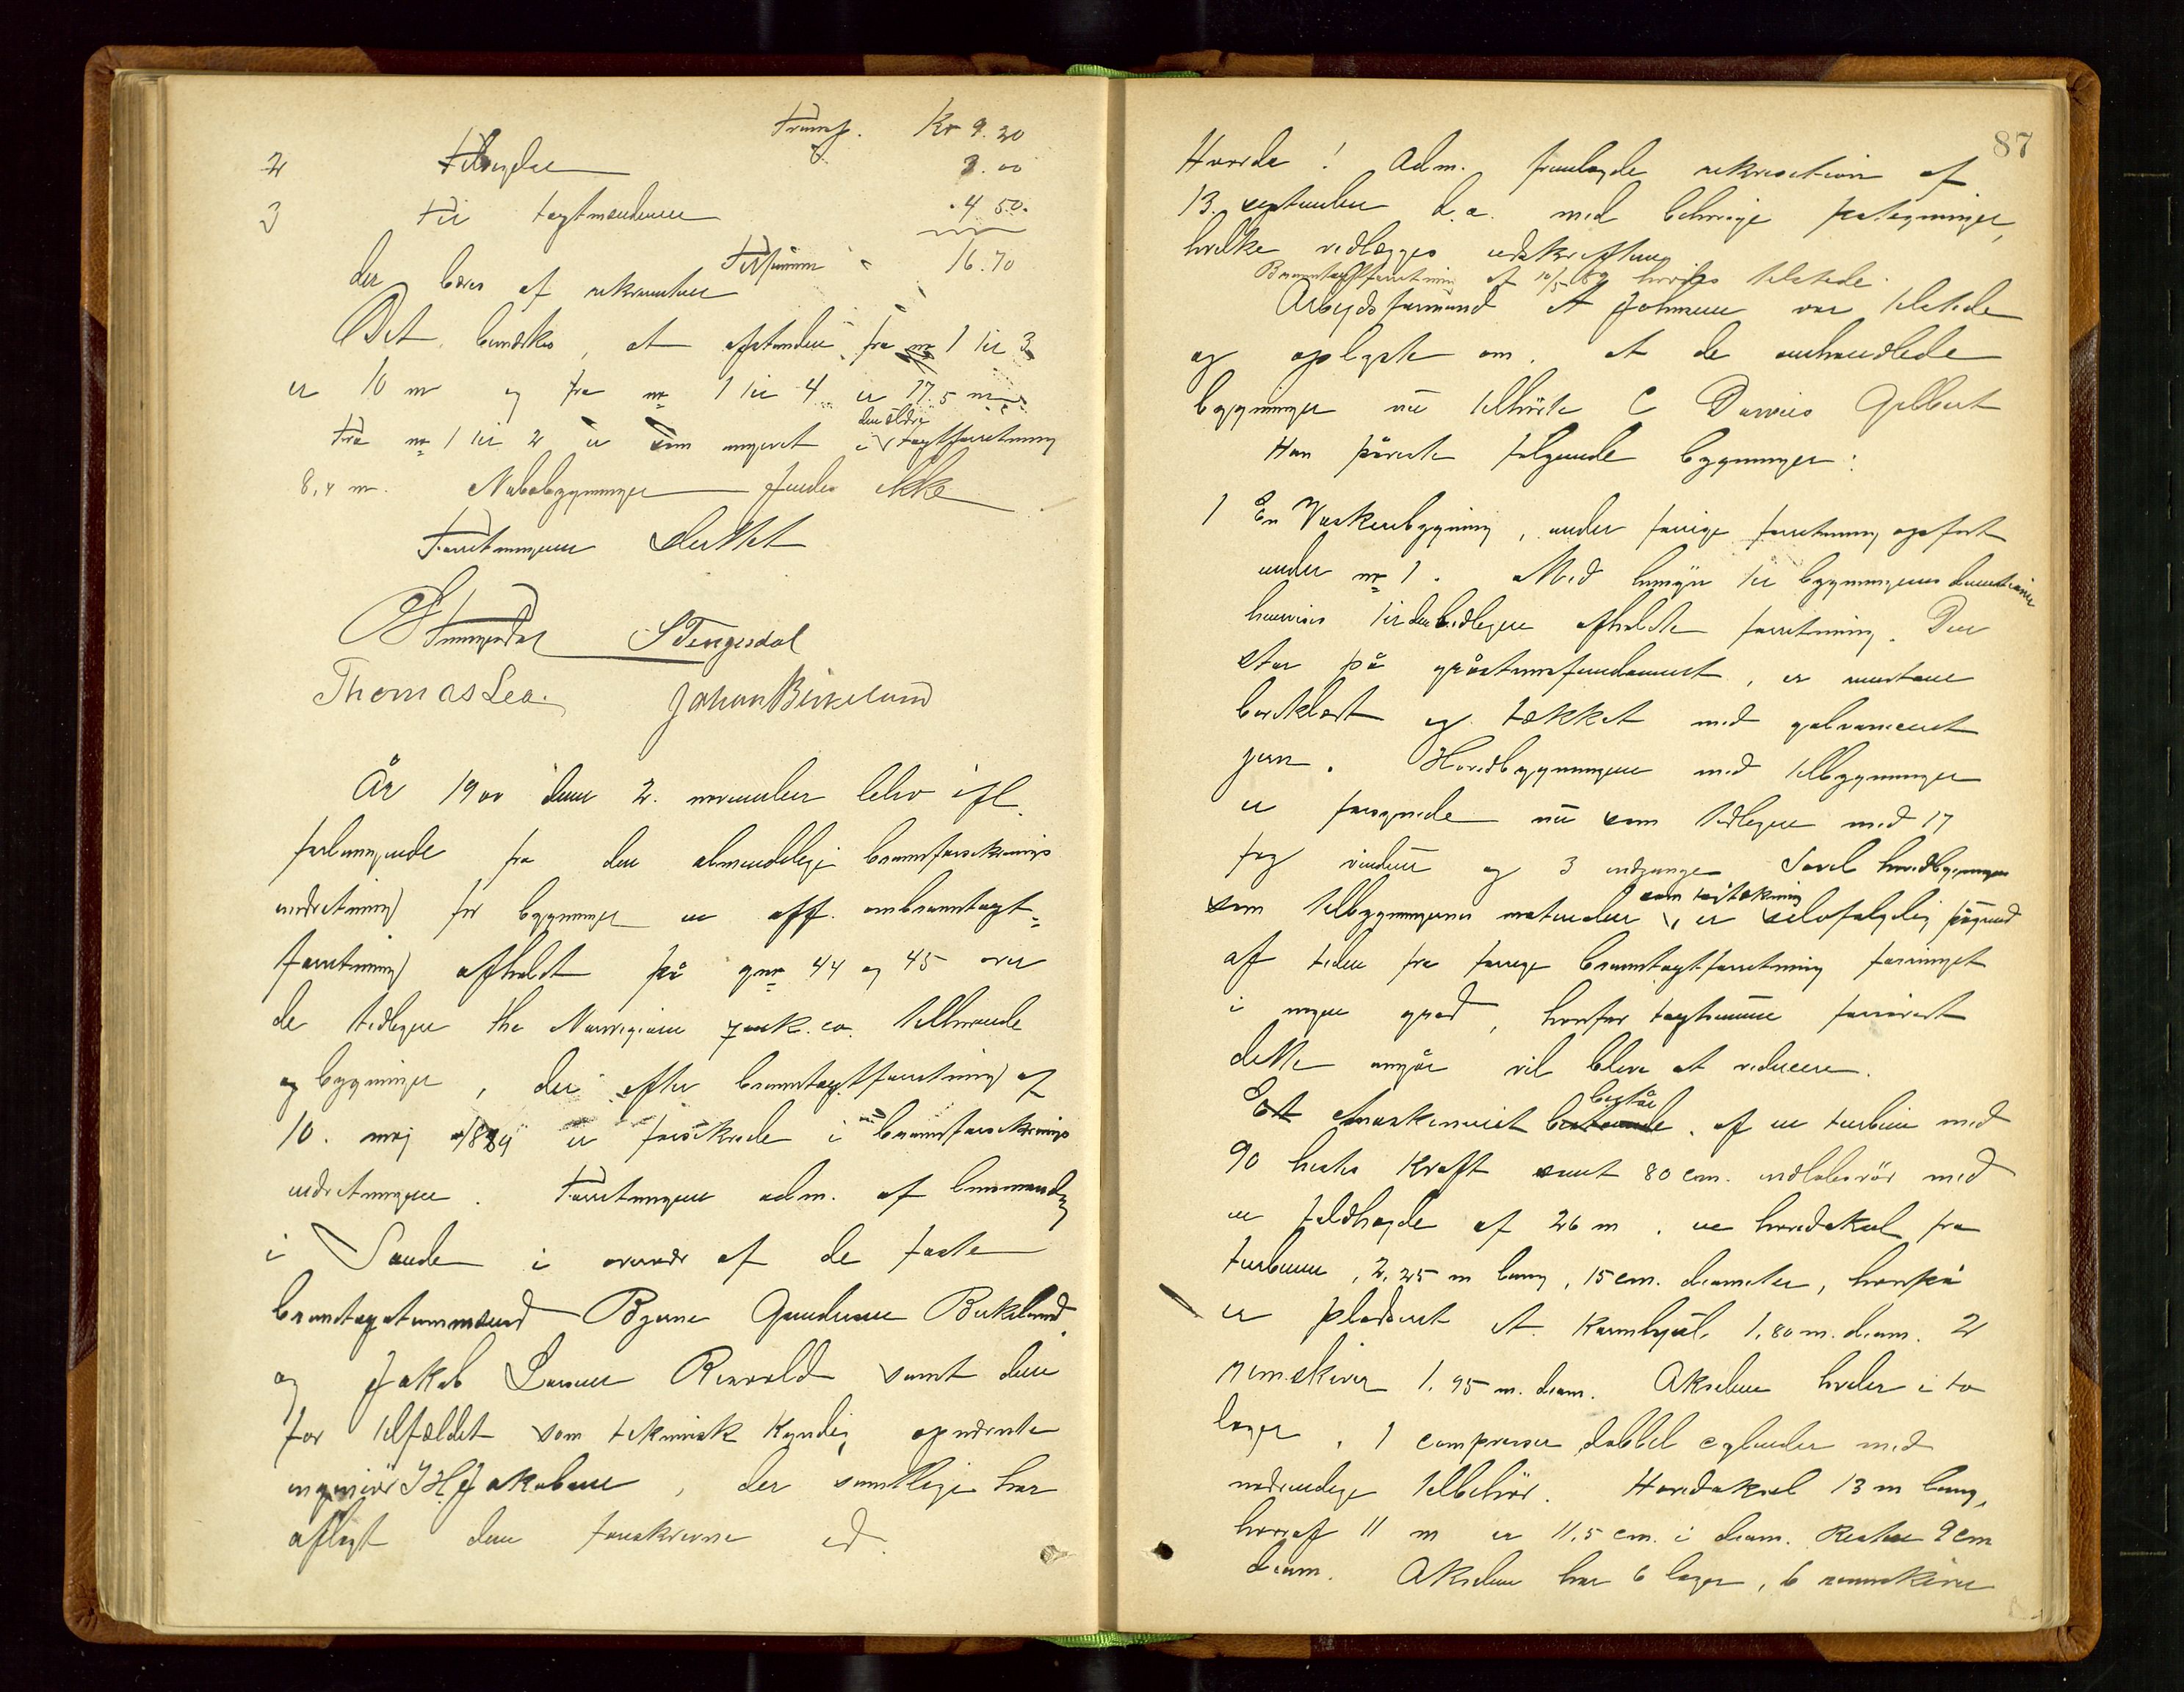 Transp. Kr 9.20
2 Tilsyn 3.00
3 Til taxtmændene 4.50
Tilsammen 16.70
der bæres af rekvirenten
Det bemærkes, at afstanden fra nr 1 til 3
er 10 m og fra nr 1 til 4 er 17.5 m
Fra nr 1 til 2 er som angivet i den ældre taxtforretning
8,4 m. Nabobygninger findes ikke
Forretningen sluttet
STengesdal
Thomas Lea. Johan Birkeland
År 1900 den 2. november blev ifl.
forlangende fra den almindelige brandforsikrings
indretning for bygninger en off. ombrandtaxt=
forretning afholdt på gnr 44 og 45 over
de tidligere the Norwegian zink. co. tilhørende
bygninger, der efter brandtaxtforretning af
10. maj 1889 er forsikrede i brandforsikrings
indretningen. Forretningen adm. af lensmanden
i Sande i overvær af de faste
brandtaxtmænd Bjarne Gundersen Birkeland
og Jakob Larsen Risvold samt den
for tilfældet som teknisk kyndig opnævnte
ingeniør I H Jakobsen, der samtlige har
aflagt den foreskrevne ed.
87
Hvorda! Adm. fremlagde rekvisition af
13. september d.a. med behørige påtegninger,
hvilke vedlægges udskriften
Brandtaxtforretning af 10/5 89 havdes tilstede.
Arbejdsformand A Johnsen var tilstede
og oplyste om, at de omhandlede
bygninger nu tilhørte C Davies Gilbert
Han påviste følgende bygninger:
1 En Vaskeribygning, under forrige forretning opført
under nr 1. Med hensyn til bygningens dimensioner
henvises til den tidligere afholdte forretning. Den
står på gråstensfundament, er
bordklædt og tækket med galvaniseret
jern. Hovedbygningen med tilbygninger
er forsynede nu som tidligere med 17
fag vinduer og 3 indgange. Såvel hovedbygningens
som tilbygningernes materialer som tagtækning, er selvfølgelig pågrund
af tiden fra forrige brandtaxtforretning forringet
i nogen grad, hvorfor taxtsummen forsåvidt
dette angår vil blive at reducere.
Et Maskineriet består af en turbin med
90 hestes kraft samt 80 cm. indløbsrør med
en faldhøyde af 26 m. en hovedaksel fra
turbinen, 2,25 m lang, 15 cm. diameter, hvorpå
er pladseret et kamhjul 1.80 m. diam. 2
remskiver 1.95 m. diam. Akselen hviler i to
lager. 1 compressor dobbel cylinder med
nødvendige tilbehør. Hovedaksel 13 m lang,
hvoraf 11 m er 11.5 cm. i diam. Resten 9 cm
diam. Akselen har 6 lager, 6 remskiver